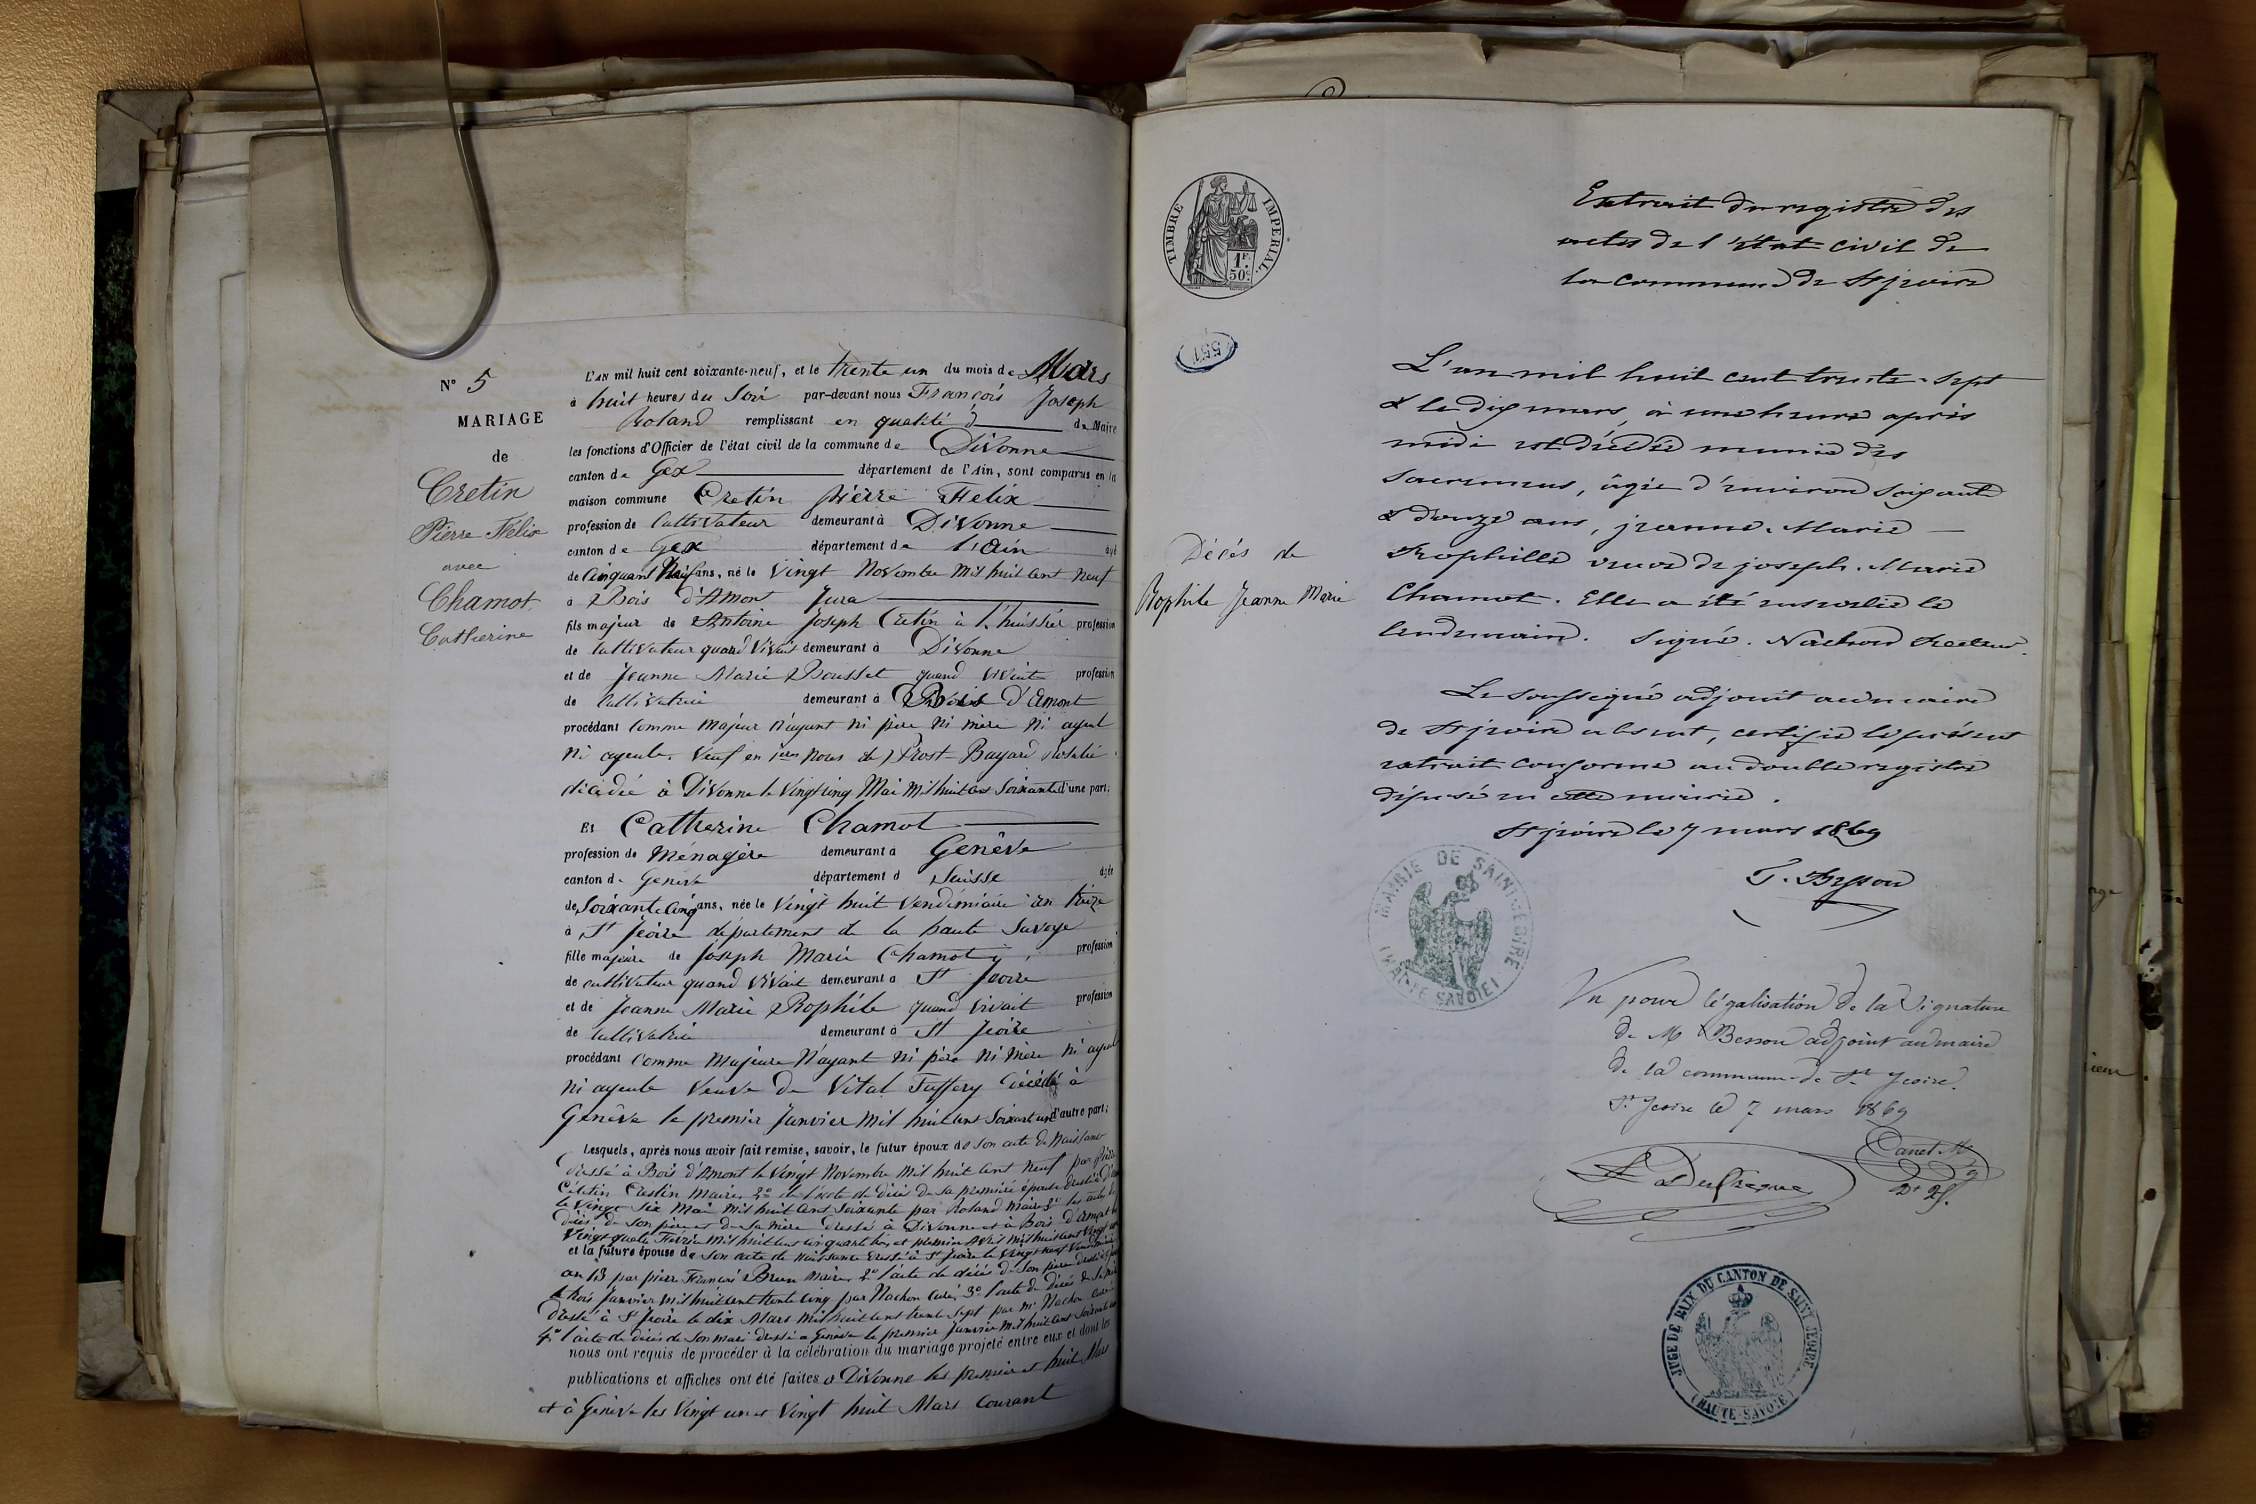 N° 5
MARIAGE
de
Cretin
Pierre Félix
avec
Chamot
Catherine
L'AN mil huit cent soixante-neuf, et le trente un du mois de Mars
à huit heures du Soir par-devant nous François Joseph
Roland remplissant en qualité d de Maire
les fonctions d'Officier de l'état civil de la commune de Divonne
canton de Gex département de l'Ain, sont comparus en la
maison commune Cretin pierre Felix
profession de Cultivateur demeurant à Divonne
canton de Gex département de l'ain âgé
de Cinquante Neuf ans, né le Vingt Novembre Mil huit Cent Neuf
à Bois d'Amont Jura
fils majeur de Antoine Joseph Cretin à l'huissier profession
de Cultivateur quand Vivait demeurant à Divonne
et de Jeanne Marie Rousset quand vivait profession
de Cultivatrice demeurant à Bois d'Amont
procédant Comme Majeur N'ayant Ni père Ni Mère Ni ayeul
Ni ayeule Veuf en 1eres Noces de Prost-Bayard Rosalie
décédée à Divonne le Vingt cinq Mai Mil huit Cent Soixante d'une part;
Et Catherine Chamot
profession de Ménagère demeurant à Genève
canton de Genève département d Suisse âgée
de Soixante Cinq ans, née le Vingt huit Vendémiaire an treize
à St Jeoire département de la haute Savoye
fille majeure de Joseph Marie Chamot profession
de cultivateur quand Vivait demeurant à St Jeoire
et de Jeanne Marie Rophile quand vivait profession
de Cultivatrice demeurant à St Jeoire
procédant Comme Majeure N'ayant Ni père Ni Mère Ni ayeul
Ni ayeule Veuve de Vital Tuffery décédé à
Genève le premier Janvier Mil huit Cent Soixante un d'autre part;
Lesquels, après nous avoir fait remise, savoir, le futur époux de Son acte de Naissance
dressé à Bois d'Amont le Vingt Novembre Mil huit Cent Neuf par
Célestin Crestin Maire, 2° de l'acte de décès de Sa première épouse dressé à
le Vingt Six Mai Mil huit Cent Soixante par Roland Maire 3° les actes de
décès de Son père et de Sa Mère dressés à Divonne et à Bois d'Amont le
Vingt quatre Février Mil huit Cent Cinquante et premier Avril Mil huit Cent Vingt
et la future épouse de Son acte de Naissance dressé à St Jeoire le Vingt Neuf Vendémiaire
an 13 par pierre François Brun Maire, 2° l'acte de décès de Son père dressé
trois Janvier Mil huit Cent trente Cinq par Nachon Curé, 3° l'acte de décès de Sa Mère
dressé à St Jeoire le dix Mars Mil huit Cent trente Sept par Mr Nachon Curé
4° l'acte de décès de Son Mari dressé à Genève le premier Janvier Mil huit Cent Soixante un
nous ont requis de procéder à la célébration du mariage projeté entre eux et dont les
publications et affiches ont été faites à Divonne les premier et huit Mars
et à Genève les Vingt un et Vingt huit Mars Courant
TIMBRE IMPERIAL.
1F.
50c.
551
Extrait du registre des
actes de l'état civil de
la commune de St jeoire
Décès de
Rophile Jeanne Marie
L'an mil huit cent trente-sept
& le dix mars, à une heure après
midi est décédée munie des
sacremens, âgée d'environ soixante
& douze ans, jeanne-Marie
Rophille veuve de joseph-Marie
Chamot. Elle a été ensevelie le
lendemain. Signé. Nachon Recteur.
Le soussigné adjoint au maire
de St jeoire absent, certifie le présent
extrait conforme au double registre
déposé en cette mairie.
St jeoire le 7 mars 1869
T. Besson
MAIRIE DE SAINT JEOIRE
(HAUTE SAVOIE)
Vu pour légalisation de la Signature
de Mr Besson adjoint au maire
de la commune de St Jeoire.
St Jeoire le 7 mars 1869
JUGE DE PAIX DU CANTON DE SAINT JEOIRE
(HAUTE-SAVOIE)